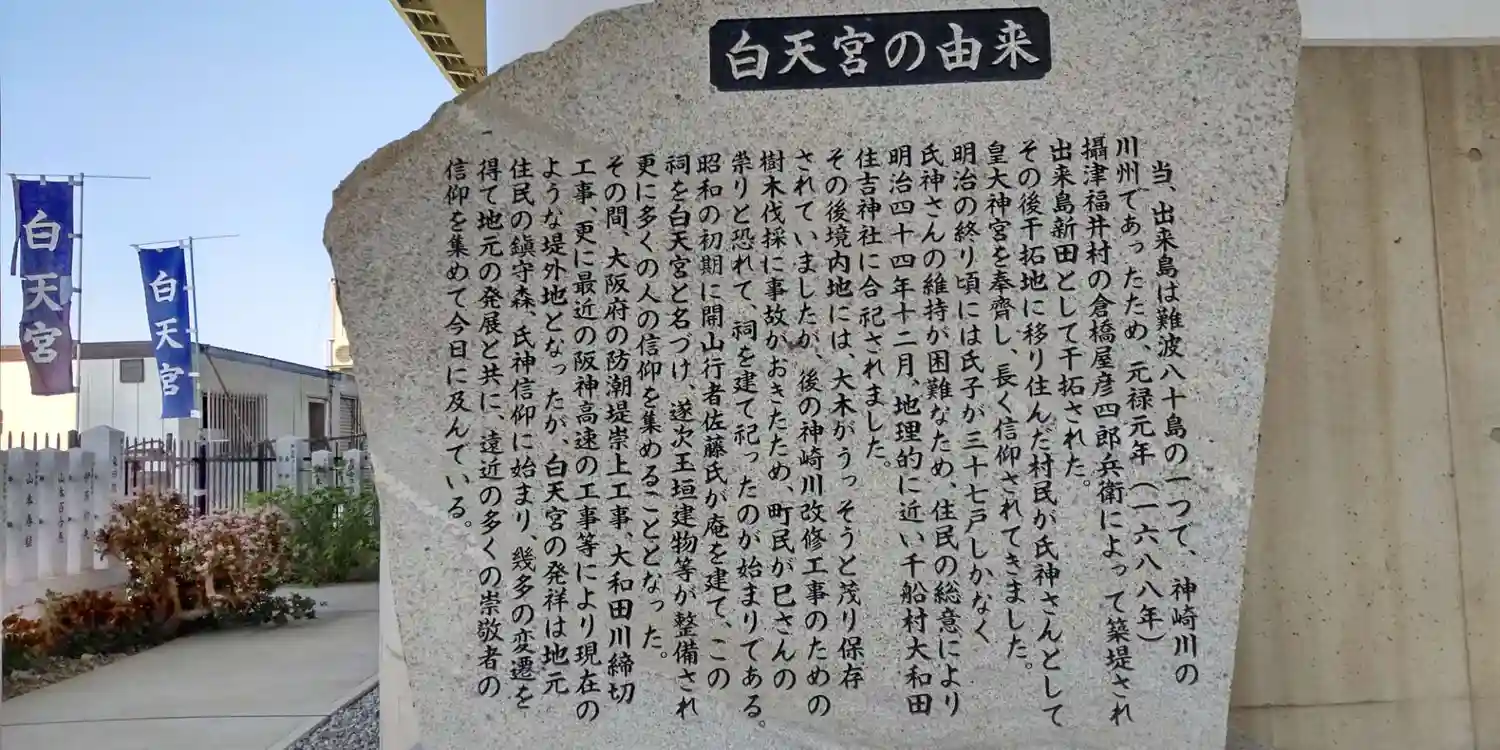 白天宮の由来
当、出来島は難波八十島の一つで、神崎川の
川州であったため、元禄元年（一六八八年）
攝津福井村の倉橋屋彦四郎兵衛によって築堤され
出来島新田として干拓された。
その後干拓地に移り住んだ村民が氏神さんとして
皇大神宮を奉齊し、長く信仰されてきました。
明治の終り頃には氏子が三十七戸しかなく
氏神さんの維持が困難なため、住民の総意により
明治四十四年十二月、地理的に近い千船村大和田
住吉神社に合祀されました。
その後境内地には、大木がうっそうと茂り保存
されていましたが、後の神崎川改修工事のための
樹木伐採に事故がおきたため、町民が巳さんの
祟りと恐れて、祠を建て祀ったのが始まりである。
昭和の初期に開山行者佐藤氏が庵を建て、この
祠を白天宮と名づけ、遂次王垣建物等が整備され
更に多くの人の信仰を集めることとなった。
その間、大阪府の防潮堤崇上工事、大和田川締切
工事、更に最近の阪神高速の工事等により現在の
ような堤外地となったが、白天宮の発祥は地元
住民の鎮守森、氏神信仰に始まり、幾多の変遷を
得て地元の発展と共に、遠近の多くの崇敬者の
信仰を集めて今日に及んでいる。
白天宮
白天宮